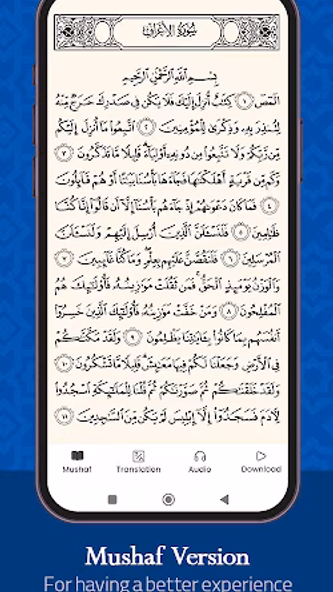 سُورَةُ الأَعْرَافِ
بِسْمِ اللَّهِ الرَّحْمَٰنِ الرَّحِيمِ
الٓمٓصٓ ١ كِتَٰبٌ أُنزِلَ إِلَيْكَ فَلَا يَكُن فِي صَدْرِكَ حَرَجٌ مِّنْهُ
لِتُنذِرَ بِهِۦ وَذِكْرَىٰ لِلْمُؤْمِنِينَ ٢ ٱتَّبِعُوا۟ مَآ أُنزِلَ إِلَيْكُم
مِّن رَّبِّكُمْ وَلَا تَتَّبِعُوا۟ مِن دُونِهِۦٓ أَوْلِيَآءَ قَلِيلًا مَّا تَذَكَّرُونَ ٣
وَكَم مِّن قَرْيَةٍ أَهْلَكْنَٰهَا فَجَآءَهَا بَأْسُنَا بَيَٰتًا أَوْ هُمْ قَآئِلُونَ
٤ فَمَا كَانَ دَعْوَىٰهُمْ إِذْ جَآءَهُم بَأْسُنَآ إِلَّآ أَن قَالُوٓا۟ إِنَّا كُنَّا
ظَٰلِمِينَ ٥ فَلَنَسْـَٔلَنَّ ٱلَّذِينَ أُرْسِلَ إِلَيْهِمْ وَلَنَسْـَٔلَنَّ
ٱلْمُرْسَلِينَ ٦ فَلَنَقُصَّنَّ عَلَيْهِم بِعِلْمٍ وَمَا كُنَّا غَآئِبِينَ ٧
وَٱلْوَزْنُ يَوْمَئِذٍ ٱلْحَقُّ فَمَن ثَقُلَتْ مَوَٰزِينُهُۥ فَأُو۟لَٰٓئِكَ هُمُ
ٱلْمُفْلِحُونَ ٨ وَمَنْ خَفَّتْ مَوَٰزِينُهُۥ فَأُو۟لَٰٓئِكَ ٱلَّذِينَ خَسِرُوٓا۟
أَنفُسَهُم بِمَا كَانُوا۟ بِـَٔايَٰتِنَا يَظْلِمُونَ ٩ وَلَقَدْ مَكَّنَّٰكُمْ
فِي ٱلْأَرْضِ وَجَعَلْنَا لَكُمْ فِيهَا مَعَٰيِشَ قَلِيلًا مَّا تَشْكُرُونَ ١٠
وَلَقَدْ خَلَقْنَٰكُمْ ثُمَّ صَوَّرْنَٰكُمْ ثُمَّ قُلْنَا لِلْمَلَٰٓئِكَةِ ٱسْجُدُوا۟
لِـَٔادَمَ فَسَجَدُوٓا۟ إِلَّآ إِبْلِيسَ لَمْ يَكُن مِّنَ ٱلسَّٰجِدِينَ ١١
Mushaf Translation Audio Download
Mushaf Version
For having a better experience